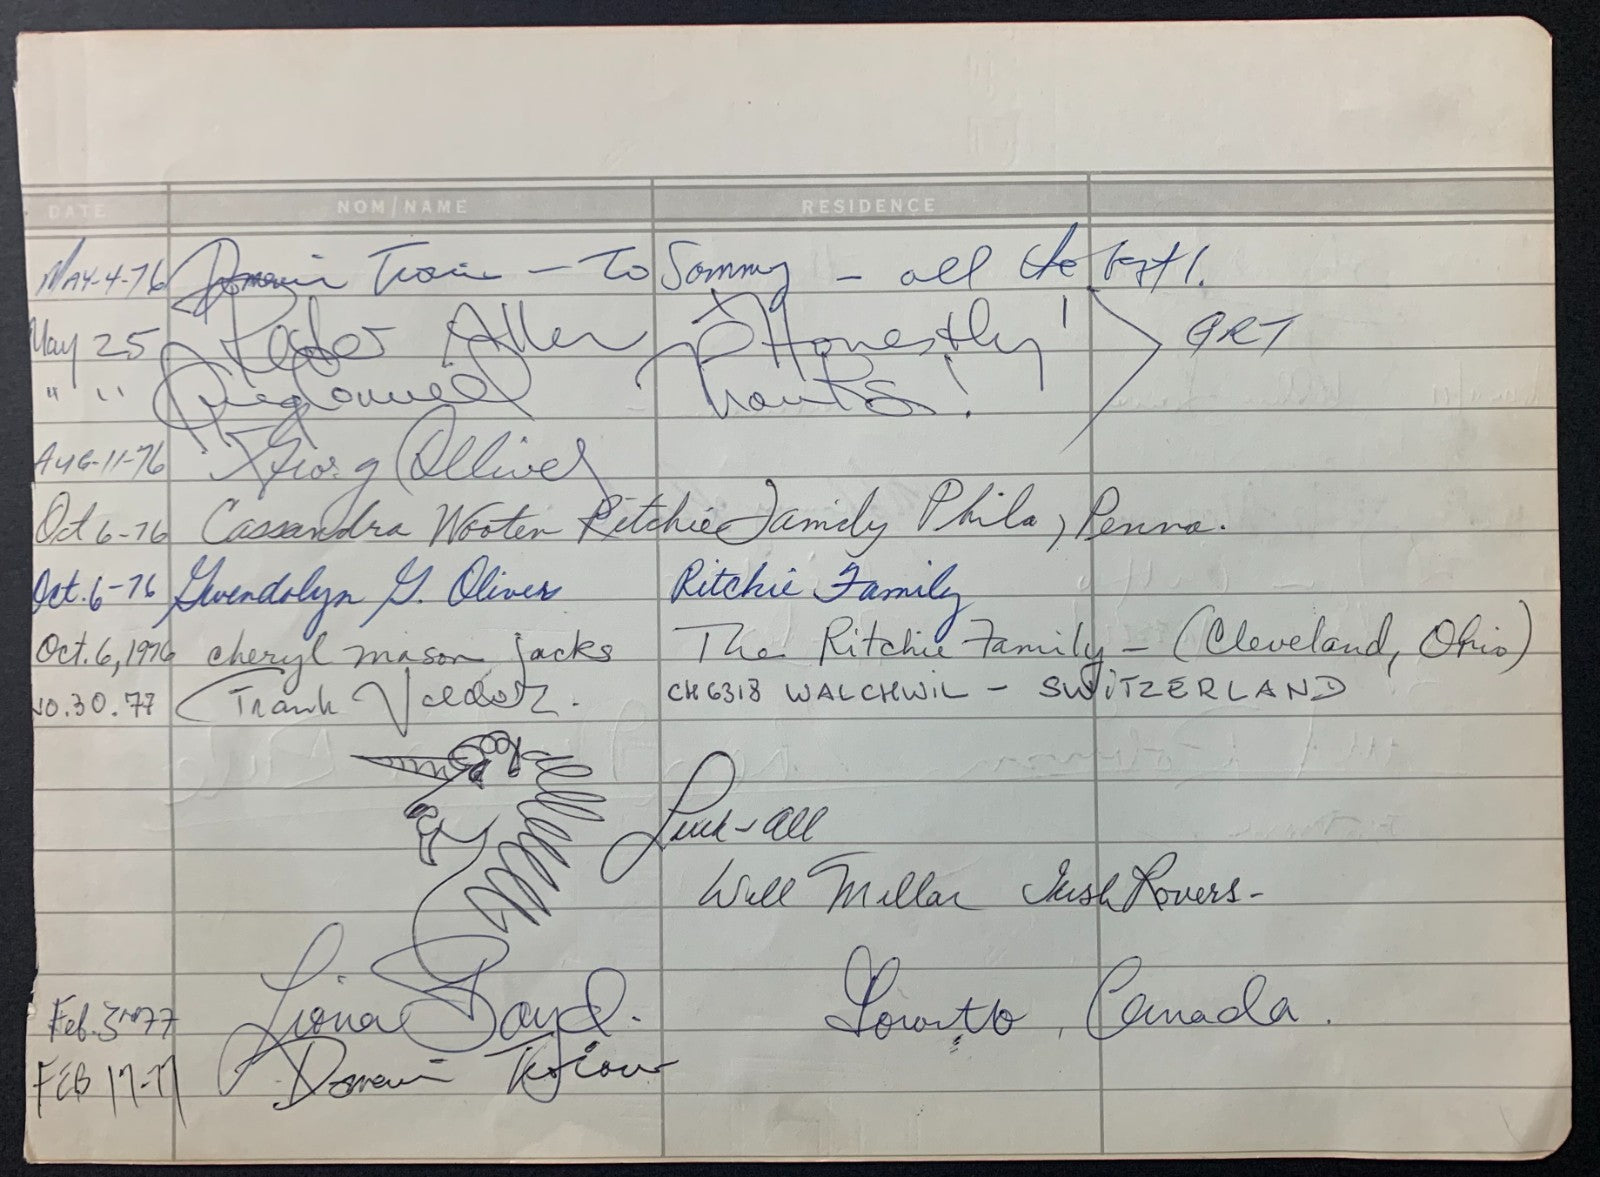 DATE NOM/NAME RESIDENCE
MAY-4-76 - To Sammy - all the best!
May 25 Allen Honestly! GRT
" " Thanks!
AUG-11-76
Oct 6-76 Cassandra Wooten Ritchie Family Phila, Penna.
Oct. 6-76 Gwendolyn G. Oliver Ritchie Family
Oct. 6, 1976 cheryl mason jacks The Ritchie Family - (Cleveland, Ohio)
30.77 Frank CH 6318 WALCHWIL - SWITZERLAND
Luck all
Will Millar Irish Rovers-
Feb. 3rd 77 Liona Boyd. Toronto, Canada.
FEB 17-77